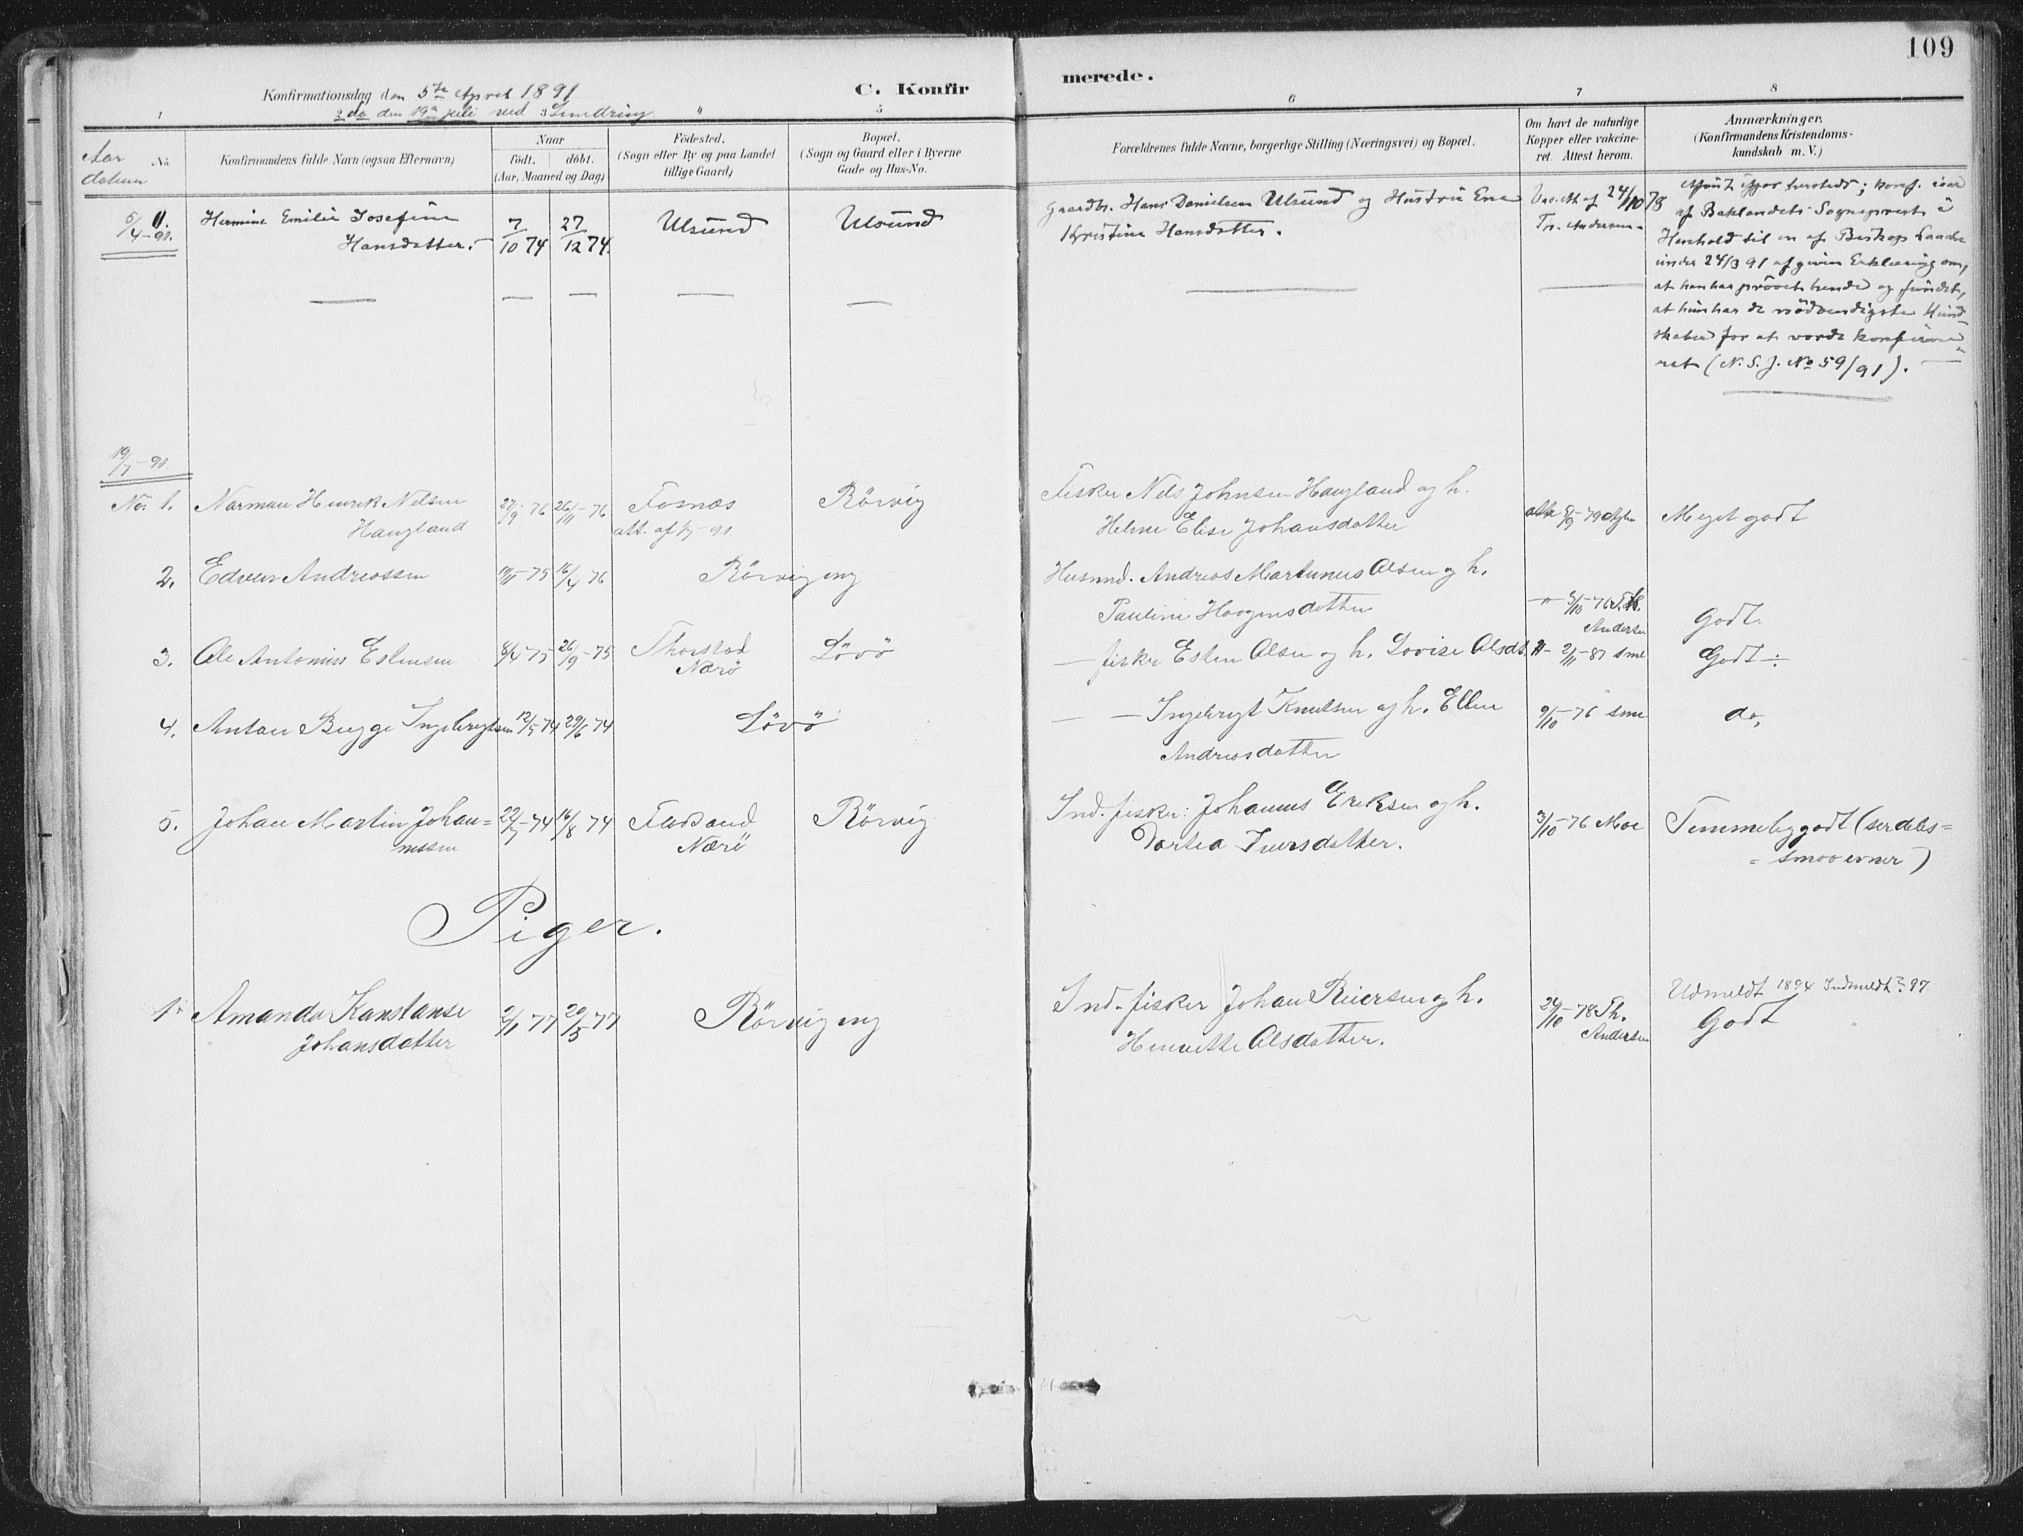 109
Konfirmationsdag den 5te April 1891 C. Konfirmerede.
do den 19 juli ved
1 5 6 7 8
Aar datum No.
Konfirmandens fulde Navn (ogsaa Efternavn)
Naar
født. døbt.
(Aar, Maaned og Dag)
Födested.
(Sogn eller By og paa Landet
tillige Gaard)
Bopæl.
(Sogn og Gaard eller i Byerne
Gade og Hus-No.
Forældrenes fulde Navne, borgerlige Stilling (Næringsvei) og Bopæl.
Om havt de naturlige
Kopper eller vakcine-
ret. Attest herom.
Anmærkninger.
(Konfirmandens Kristendoms-
kundskab m. V.)
5/4-91. Hermine Emilie Josefine 7/10 74 27/12 74. Ulsund Ulsund Gaardbr. Hans Danielsen Ulsund og Hustru Ane Vac. At. af 24/10 78
Hansdatter. Kristine Hansdatter. Th. Andersen
herstedt; konf.
af Baklandets Sogneprest i
Henhold til en af Biskop
under 24/3 91 afgiven Erklæring om,
at han har prövet hende og fundet,
at hun har de nödvendigste Kund-
skaber for at vorde konfirme-
ret (N. S. J. No 59/91).
19/7-91.
No. 1. Norman Henrik Nilsen 27/9-76 26/11-76 Fosnæs Rörvig Fisker Nils Johnsen Haugland og h.
Haugland att. af 91 Helene Elise Johansdatter Meget godt
2. Edvin Andreassen 75 16/4 76 Rörvig eng Husmd. Andreas Martinus Olsen og h.
Pauline Haagensdatter 5/10-76 Th. Andersen Godt.
3. Ole Antonius Estensen 8/4 75 26/9-75 Thorstad Nærö Lövö — fisker Esten Olsen og h. Lovise Olsdt. 2/11-87 sme Godt ÷
4. Anton Brygge Ingebrigtsen 12/5 74 29/6 74 Lövö — — Ingebrigt Knutsen og h. Ellen 9/10-76 sme do.
Andreasdatter
5. Johan Martin Johan= 22/7-74 16/8 74 Flosand Nærö Rörvig Ind. fisker: Johannes Eriksen og h. 3/10-76 Moe Temmelig godt (serdeles=
nessen Dortea Iversdatter. = smaa evner)
Piger.
1. Amanda Konstanse 2/1 77 20/5 77 Rörvig eng Ind. fisker Johan Reiersen og h. 24/10-78 Th. Andersen Udmeldt 1894 Indmeldt 97.
Johansdatter Henriette Olsdatter. Godt